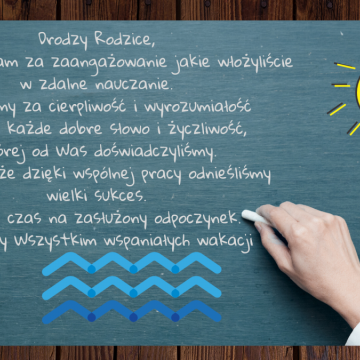 Drodzy Rodzice,
za zaangażowanie jakie włożyliście
w zdalne nauczanie.
za cierpliwość i wyrozumiałość
każde dobre słowo i życzliwość,
od Was doświadczyliśmy.
że dzięki wspólnej pracy odnieśliśmy
wielki sukces.
czas na zasłużony odpoczynek.
Wszystkim wspaniałych wakacji